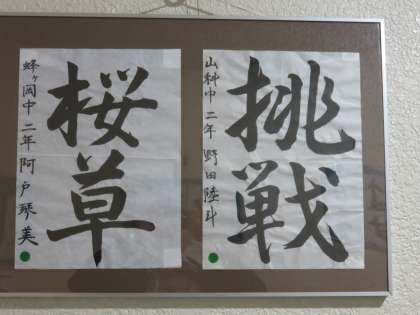 挑戦
山科中 二年 野田陸斗
桜草
蜂ヶ岡中 二年 阿戸琴美